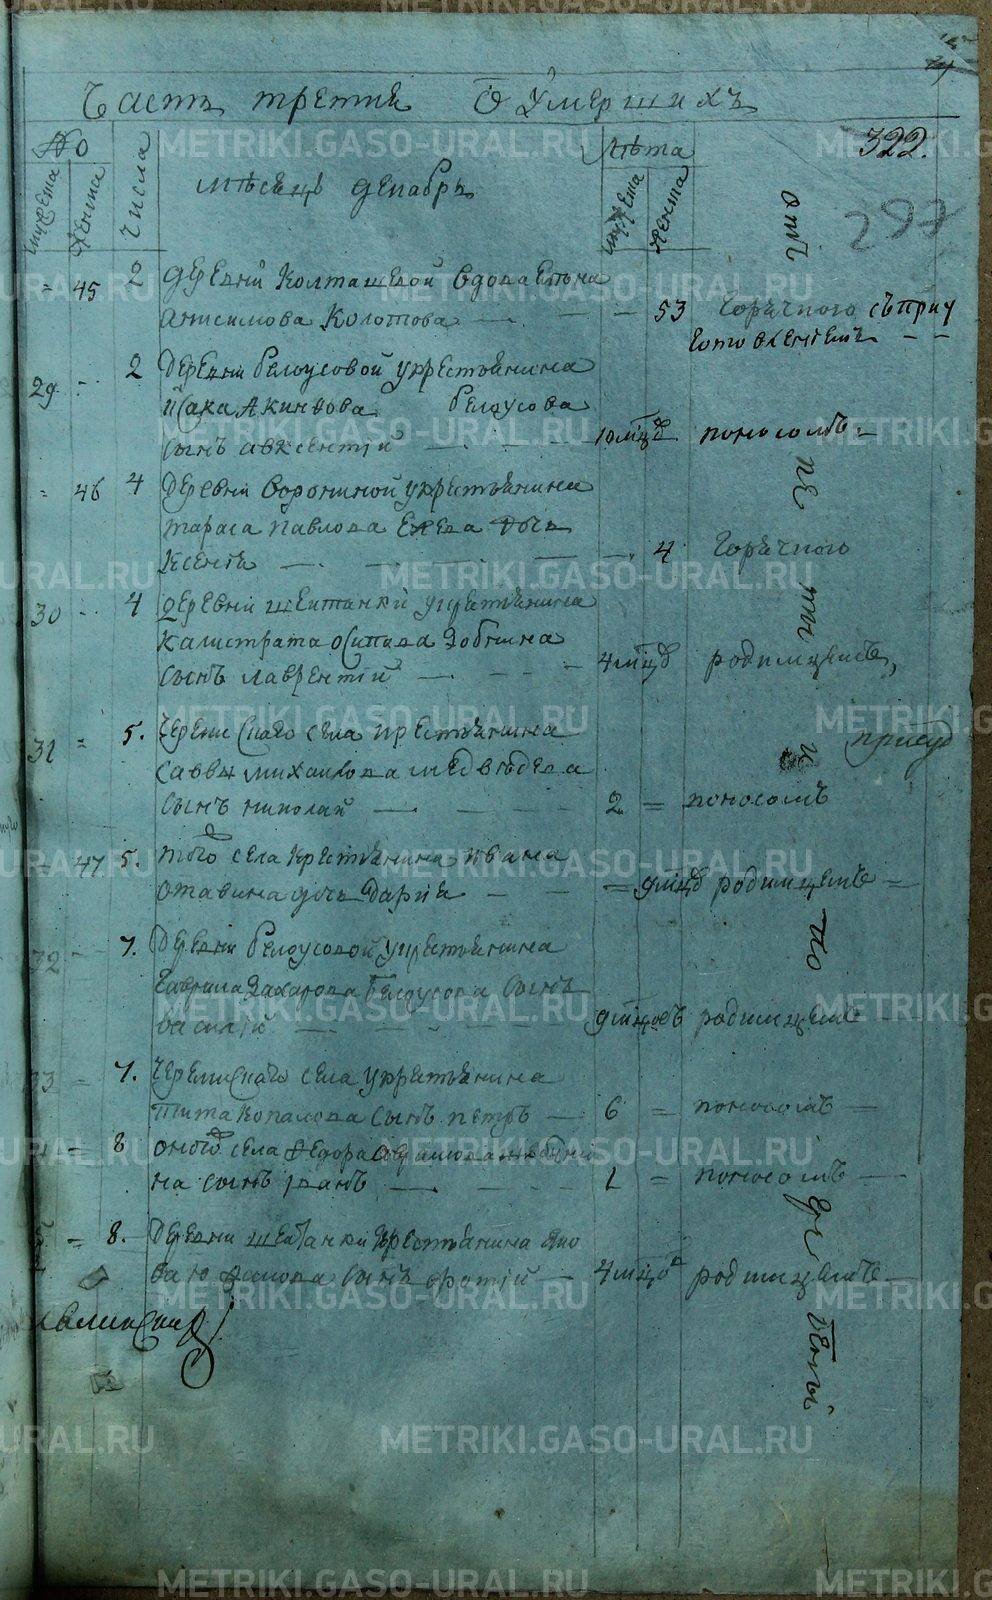 Часть третия О Умершихъ
322.
297
№
мужеска
женска
числа
мѣсецъ декабрь
лѣта
мужеска
женска
45 2 деревни Колташевой вдова Елена
Анисимова Колотова — 53 Горячного съ приу
готовлениемъ
29 2 деревни белоусовой у крестьянина
Исака Акинѳова белоусова
сынъ авксентий — 10 мцъ поносомъ
46 4 деревни ворониной у крестьянина
тараса павлова дочь
Ксения — 4 Горячного
30 4 деревни шайтанки у крестьянина
калистрата осипова Зобнина
сынъ лаврентий — 4 мцъ родимцемъ
31 5. черемискаго села крестьянина
саввы михаилова медвѣдева
сынъ николай — 2 поносомъ
47 5. того села крестьянина ивана
дочь Дария — 9 мцъ родимцемъ
32 7. деревни белоусовой у крестьянина
Гаврила Захарова белоусова сынъ
василий — 9 мцовъ родимцемъ
33 7. черемискаго села у крестьянина
тита копалова сынъ петръ — 6 поносомъ
8 оного села Ѳедора
на сынъ иванъ — 1 поносомъ
8. деревни шайтанки крестьянина
сынъ — 4 мцъ родимцемъ
METRIKI.GASO-URAL.RU